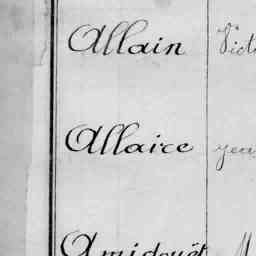 Allain Vict
Allaire
Amidouët